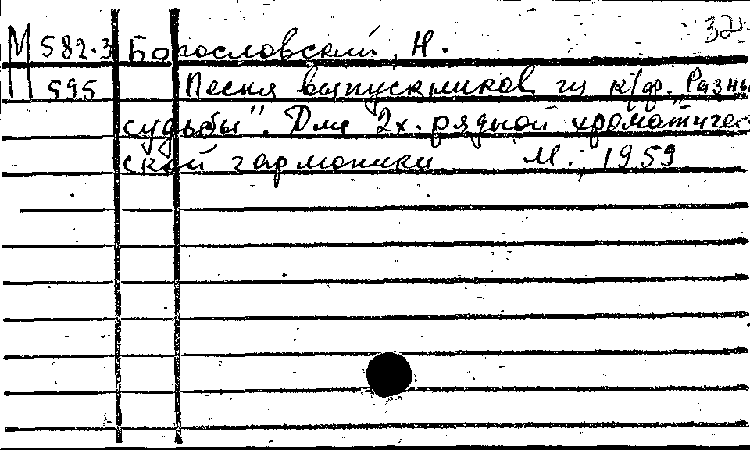 М 582.3 Богословский, Н. 32
595 Песня выпускников из к/ф. „Разны
судьбы". Для 2х. рядной хроматичес
ской гармоники М., 1959